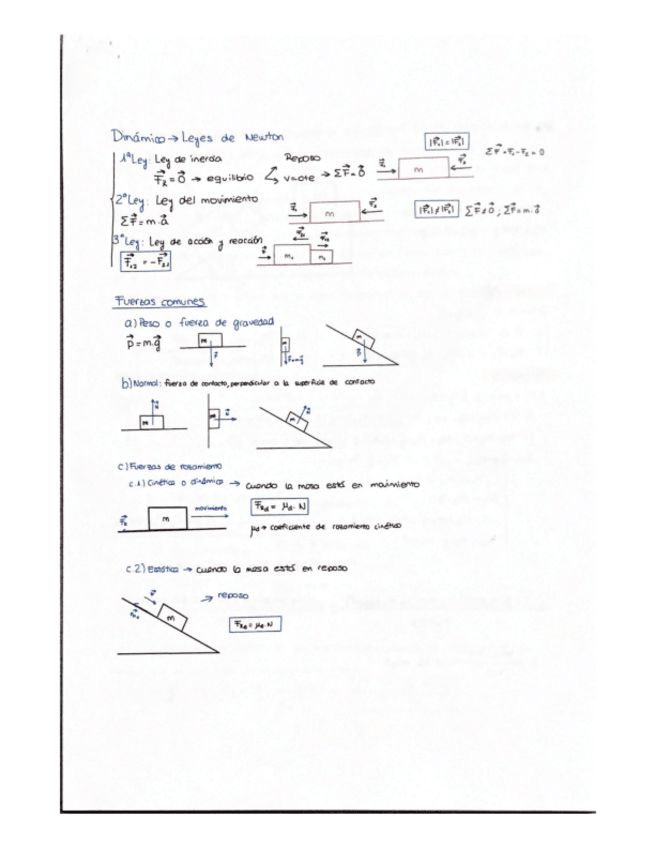 Dinámica → Leyes de Newton
|F⃗₁|=|F⃗₂|
1ª Ley: Ley de inercia Reposo
F⃗R = 0⃗ → equilibrio v=cte → ΣF⃗=0⃗ m ΣF⃗ = F₁-F₂ = 0
2ª Ley: Ley del movimiento
ΣF⃗ = m·a⃗ m |F⃗₁|≠|F⃗₂| ΣF⃗≠0⃗ ; ΣF⃗=m·a⃗
3ª Ley: Ley de acción y reacción
F⃗₁₂ = -F⃗₂₁ m₁ m₂
Fuerzas comunes
a) Peso o fuerza de gravedad
p⃗ = m·g⃗ m m m
b) Normal: fuerza de contacto, perpendicular a la superficie de contacto
m m m
c) Fuerzas de rozamiento
c.1) Cinética o dinámica → cuando la masa está en movimiento
m movimiento FRd = μd · N
μd → coeficiente de rozamiento cinético
c.2) Estática → cuando la masa está en reposo
→ reposo
m